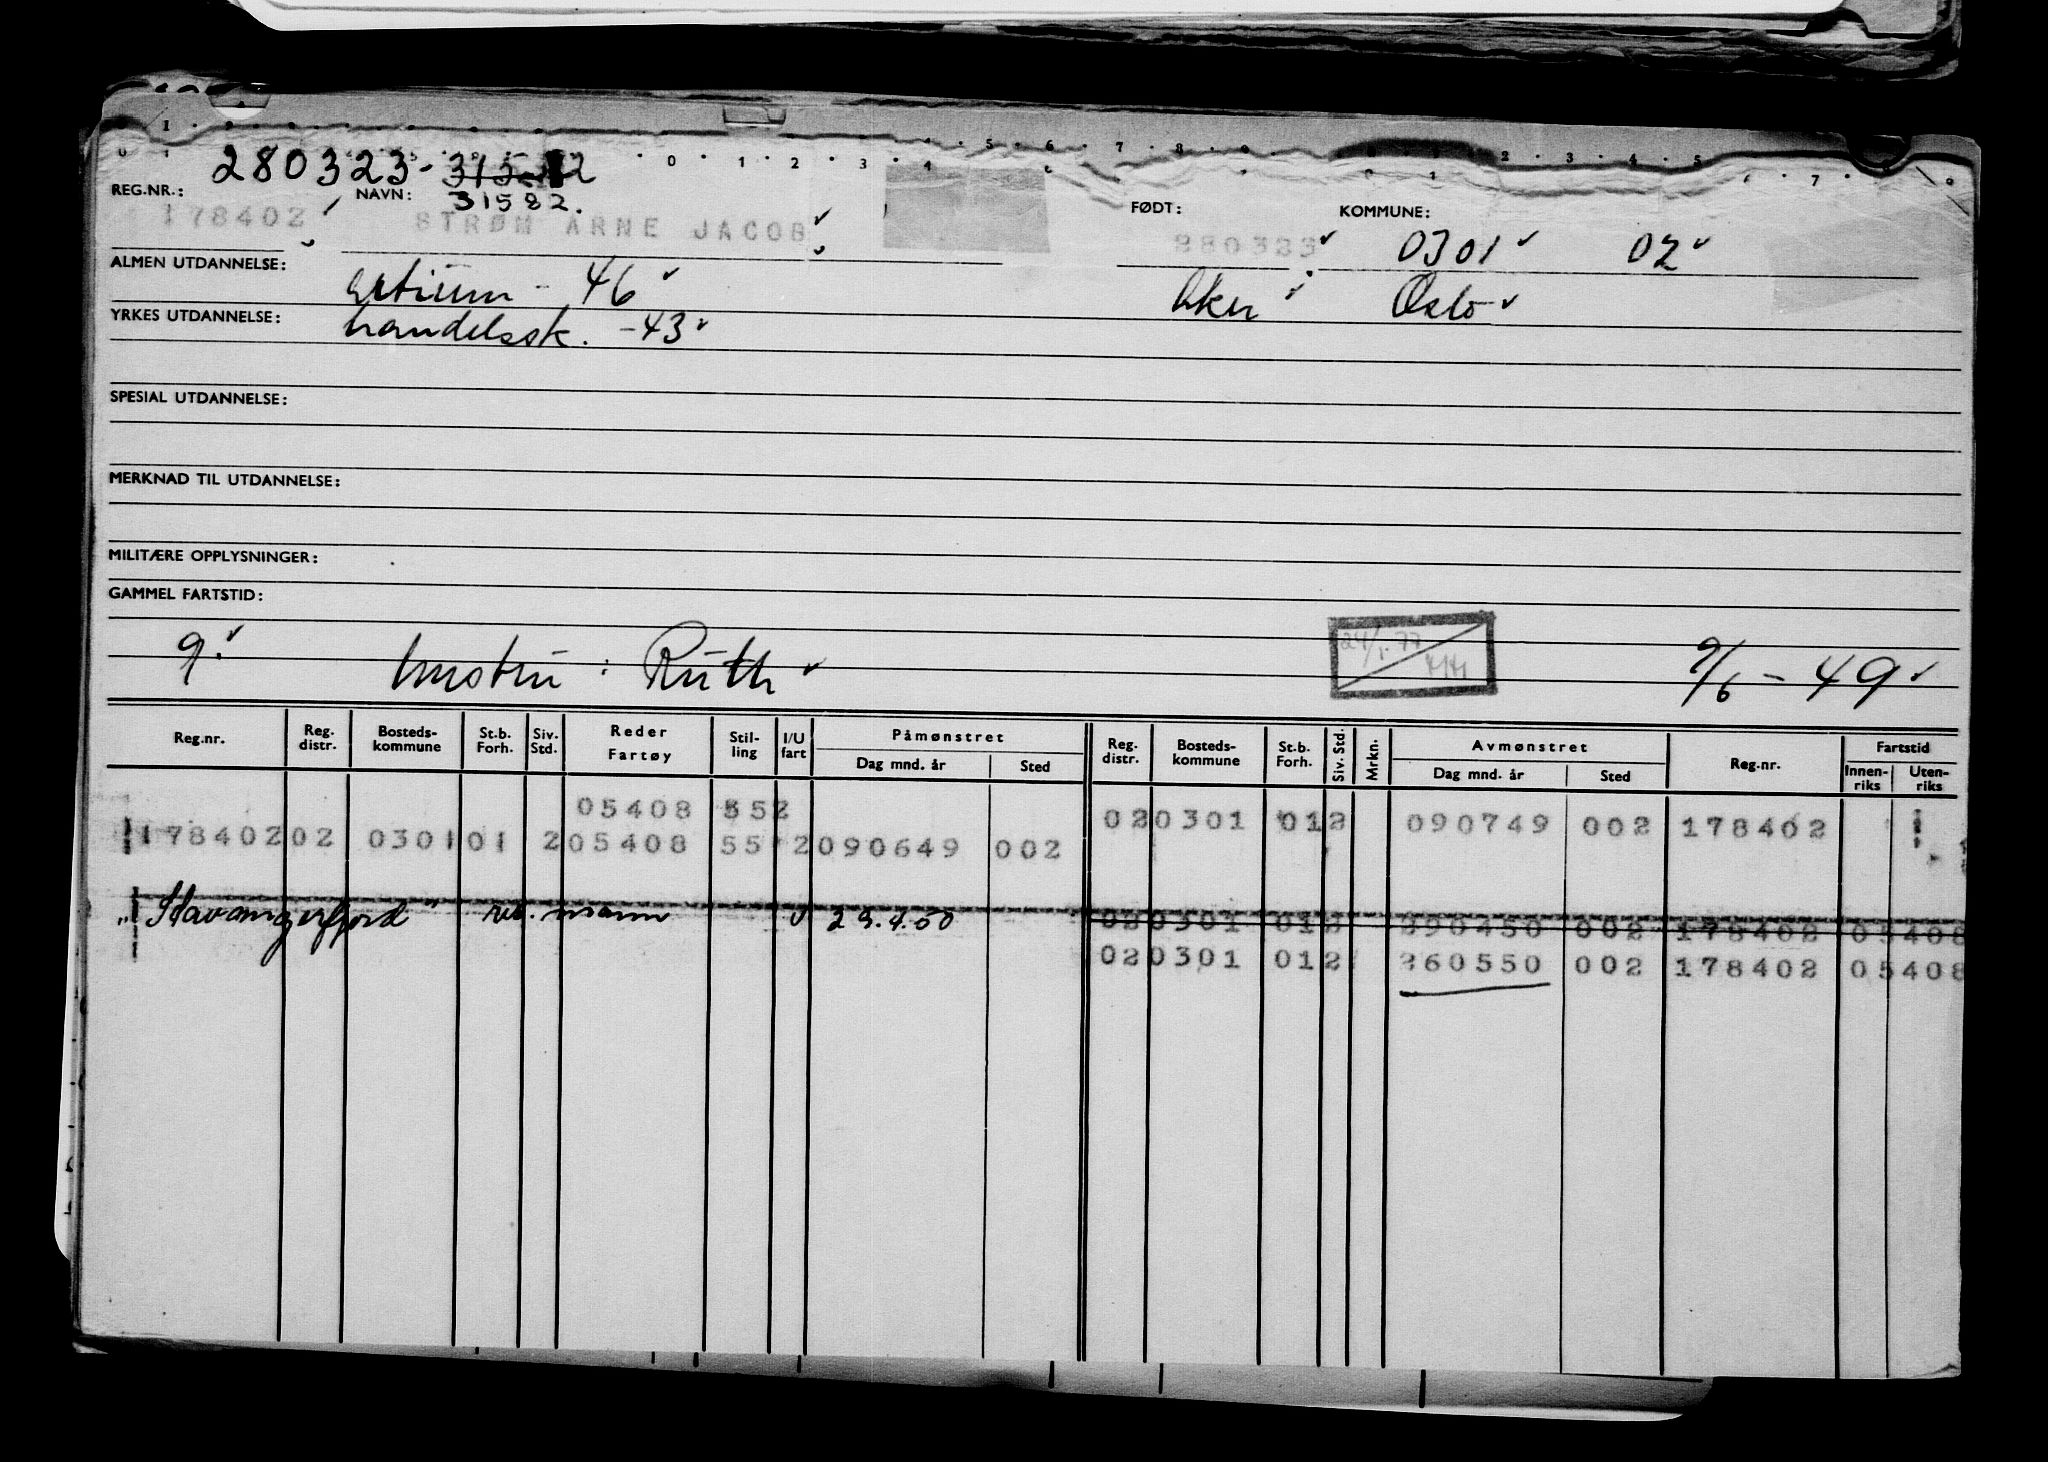 280323-31512
REG.NR.: NAVN: 31582.
178402 STRØM ARNE JACOB FØDT: 280323 KOMMUNE: 0301 02
ALMEN UTDANNELSE: artium - 46 Aker Oslo
YRKES UTDANNELSE: handelssk. -43
SPESIAL UTDANNELSE:
MERKNAD TIL UTDANNELSE:
MILITÆRE OPPLYSNINGER:
GAMMEL FARTSTID:
g. hustru : Ruth 24/1.77 9/6-49
Reg.nr. Reg. distr. Bosteds-kommune St.b. Forh. Siv. Std. Reder Fartøy Stil-ling I/U fart Påmønstret Dag mnd. år Sted Reg. distr. Bosteds-kommune St.b. Forh. Siv. Std. Mrkn. Avmønstret Dag mnd. år Sted Reg.nr. Fartstid Innen-riks Uten-riks
05408 552 02 0301 01 2 090749 002 178402 1
178402 02 0301 01 2 05408 55 2 090649 002
"Stavangerfjord" res. mann U 29.4.50 02 0301 01 2 290450 002 178402 05408
02 0301 01 2 260550 002 178402 05408